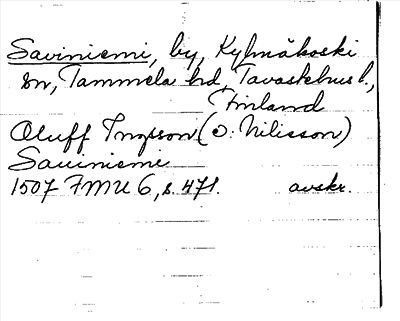 Saviniemi, by, Kylmäkoski
sn, Tammela hd, Tavastehus l.,
Finland
Oluff Ingesson (o: Nilisson)
Sauiniemi
1507 FMU 6, s. 471. avskr.